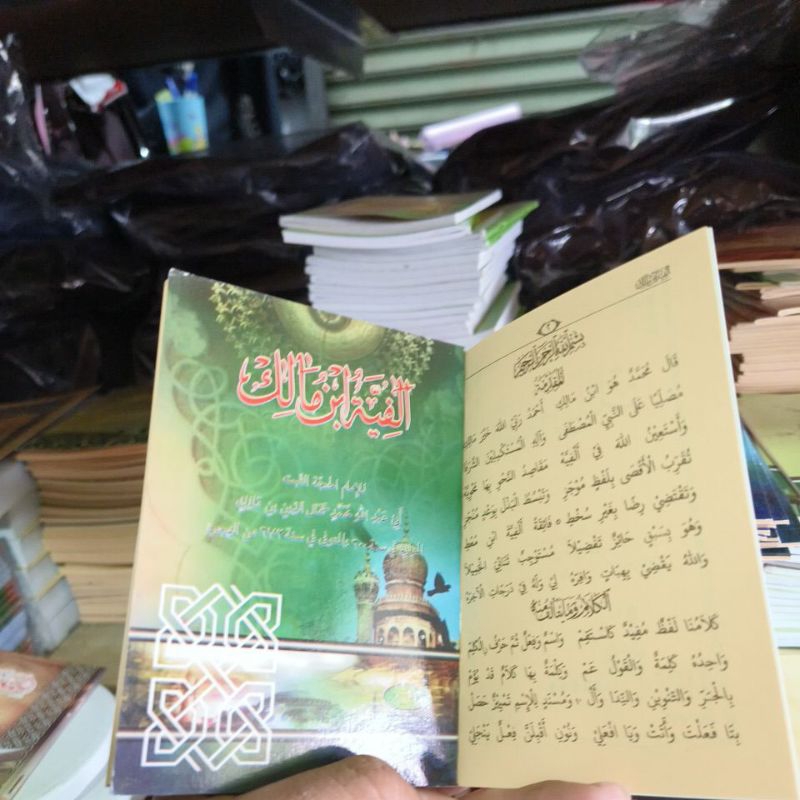 الفية ابن مالك
للإمام الحجة الثبت
أبي عبد الله محمد جمال الدين بن مالك
الفية ابن مالك
٢
بسم الله الرحمن الرحيم
المقدمة
قَالَ مُحَمَّدٌ هُوَ ابْنُ مَالِكِ أَحْمَدُ رَبِّي اللهَ خَيْرَ مَالِكِ
مُصَلِّيًا عَلَى النَّبِيِّ الْمُصْطَفَى وَآلِهِ الْمُسْتَكْمِلِيْنَ الشَّرَفَا
وَأَسْتَعِيْنُ اللهَ فِي أَلْفِيَّهْ مَقَاصِدُ النَّحْوِ بِهَا مَحْوِيَّهْ
تُقَرِّبُ الْأَقْصَى بِلَفْظٍ مُوْجَزِ وَتَبْسُطُ الْبَذْلَ بِوَعْدٍ مُنْجَزِ
وَتَقْتَضِيْ رِضًا بِغَيْرِ سُخْطِ * فَائِقَةً أَلْفِيَّةَ ابْنِ مُعْطِ
وَهُوَ بِسَبْقٍ حَائِزٌ تَفْضِيْلاً مُسْتَوْجِبٌ ثَنَائِيَ الْجَمِيْلاَ
وَاللهُ يَقْضِيْ بِهِبَاتٍ وَافِرَهْ لِيْ وَلَهُ فِيْ دَرَجَاتِ الْآخِرَهْ
الكلام وما يتألف منه
كَلاَمُنَا لَفْظٌ مُفِيْدٌ كَاسْتَقِمْ وَاسْمٌ وَفِعْلٌ ثُمَّ حَرْفٌ نِ الْكَلِمْ
وَاحِدُهُ كَلِمَةٌ وَالْقَوْلُ عَمْ وَكِلْمَةٌ بِهَا كَلاَمٌ قَدْ يُؤَمْ
بِالْجَرِّ وَالتَّنْوِيْنِ وَالنِّدَا وَأَلْ * وَمُسْنَدٍ لِلْإِسْمِ تَمْيِيْزٌ حَصَلْ
بِتَا فَعَلْتَ وَأَتَتْ وَيَا افْعَلِيْ وَنُوْنِ أَقْبِلَنَّ فِعْلٌ يَنْجَلِيْ